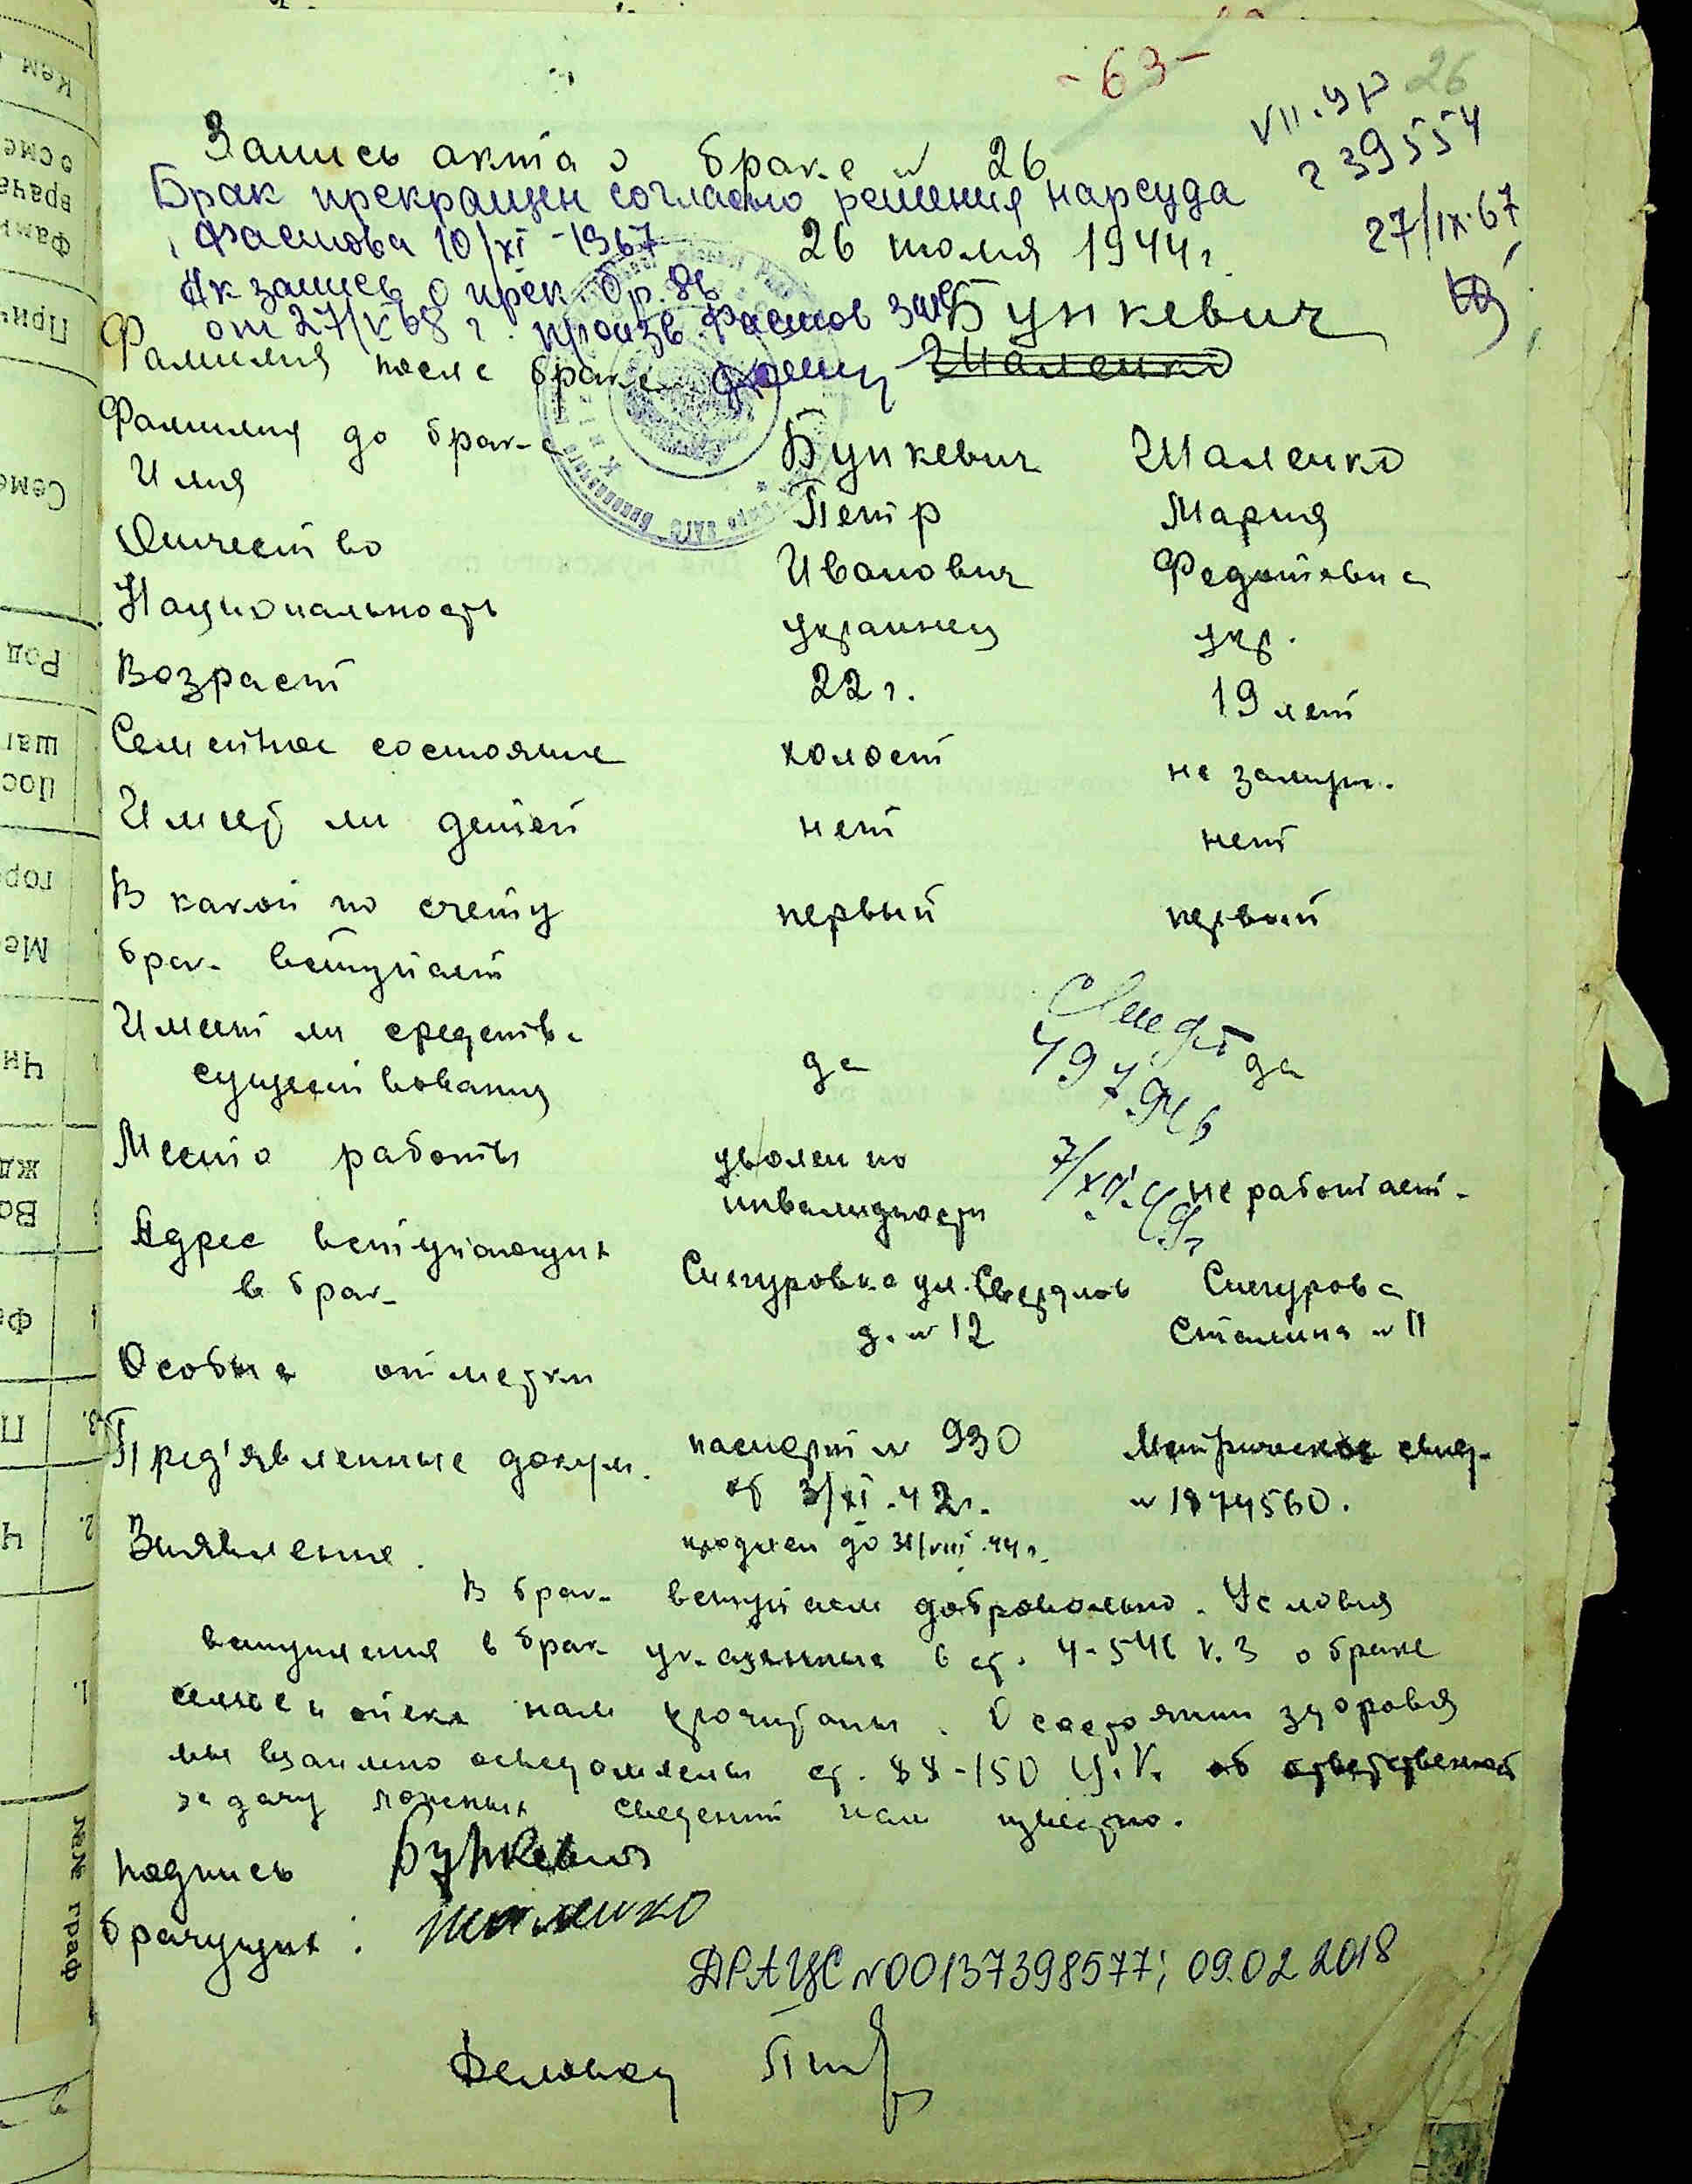 - 63 -
26
VII. УР
2 39554
27/IX.67
Запись акта о браке N 26
Брак прекращен согласно решения нарсуда
Фастова 10/XI - 1967
26 июля 1944 г.
Ак запись о прек. бр. 86
от 27/V 68 г. произв. Фастов ЗАГС
Бункевич
Фамилия после брака Шаленко
Фамилия до брака Бункевич Шаленко
Имя Петр Мария
Отчество Иванович Федотовна
Национальность украинец укр.
Возраст 22 г. 19 лет
Семейное состояние холост не замуж.
Имеет ли детей нет нет
В какой по счету первый первый
брак вступает
Имеет ли средства
существования да да
497946
7/XII.49г
Место работы уволен по не работает.
инвалидности
Адрес вступающих Снегуровка ул. Свердлов Снегуровка
в брак д. N 12 Сталина N 11
Особые отметки
Пред'явленные докум. паспорт N 990 Метрическое свид.
от 3/XI.42г. N 1874560.
Заявление. продлен до 31/VIII.44 г.
В брак вступаем добровольно. Условия
вступления в брак указанные в ст. 4-5 К.З о браке
семье и опеке нам прочитаны. О состоянии здоровья
мы взаимно осведомлены ст. 88-150 У.К. об ответственной
за дачу ложных сведений нам известно.
Подпись Бункевич
брачущих: Шаленко
ДРАЦС N00137398577; 09.02.2018